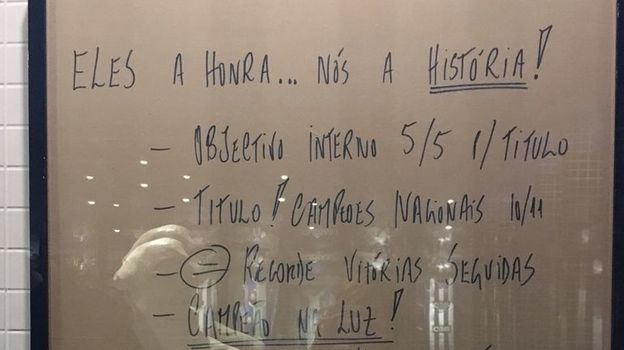 ELES A HONRA... NÓS A HISTÓRIA!
- OBJECTIVO INTERNO 5/5 P/TITULO
- TITULO! CAMPEOES NACIONAIS 10/11
- = RECORDE VITÓRIAS SEGUIDAS
- CAMPEÃO NA LUZ!